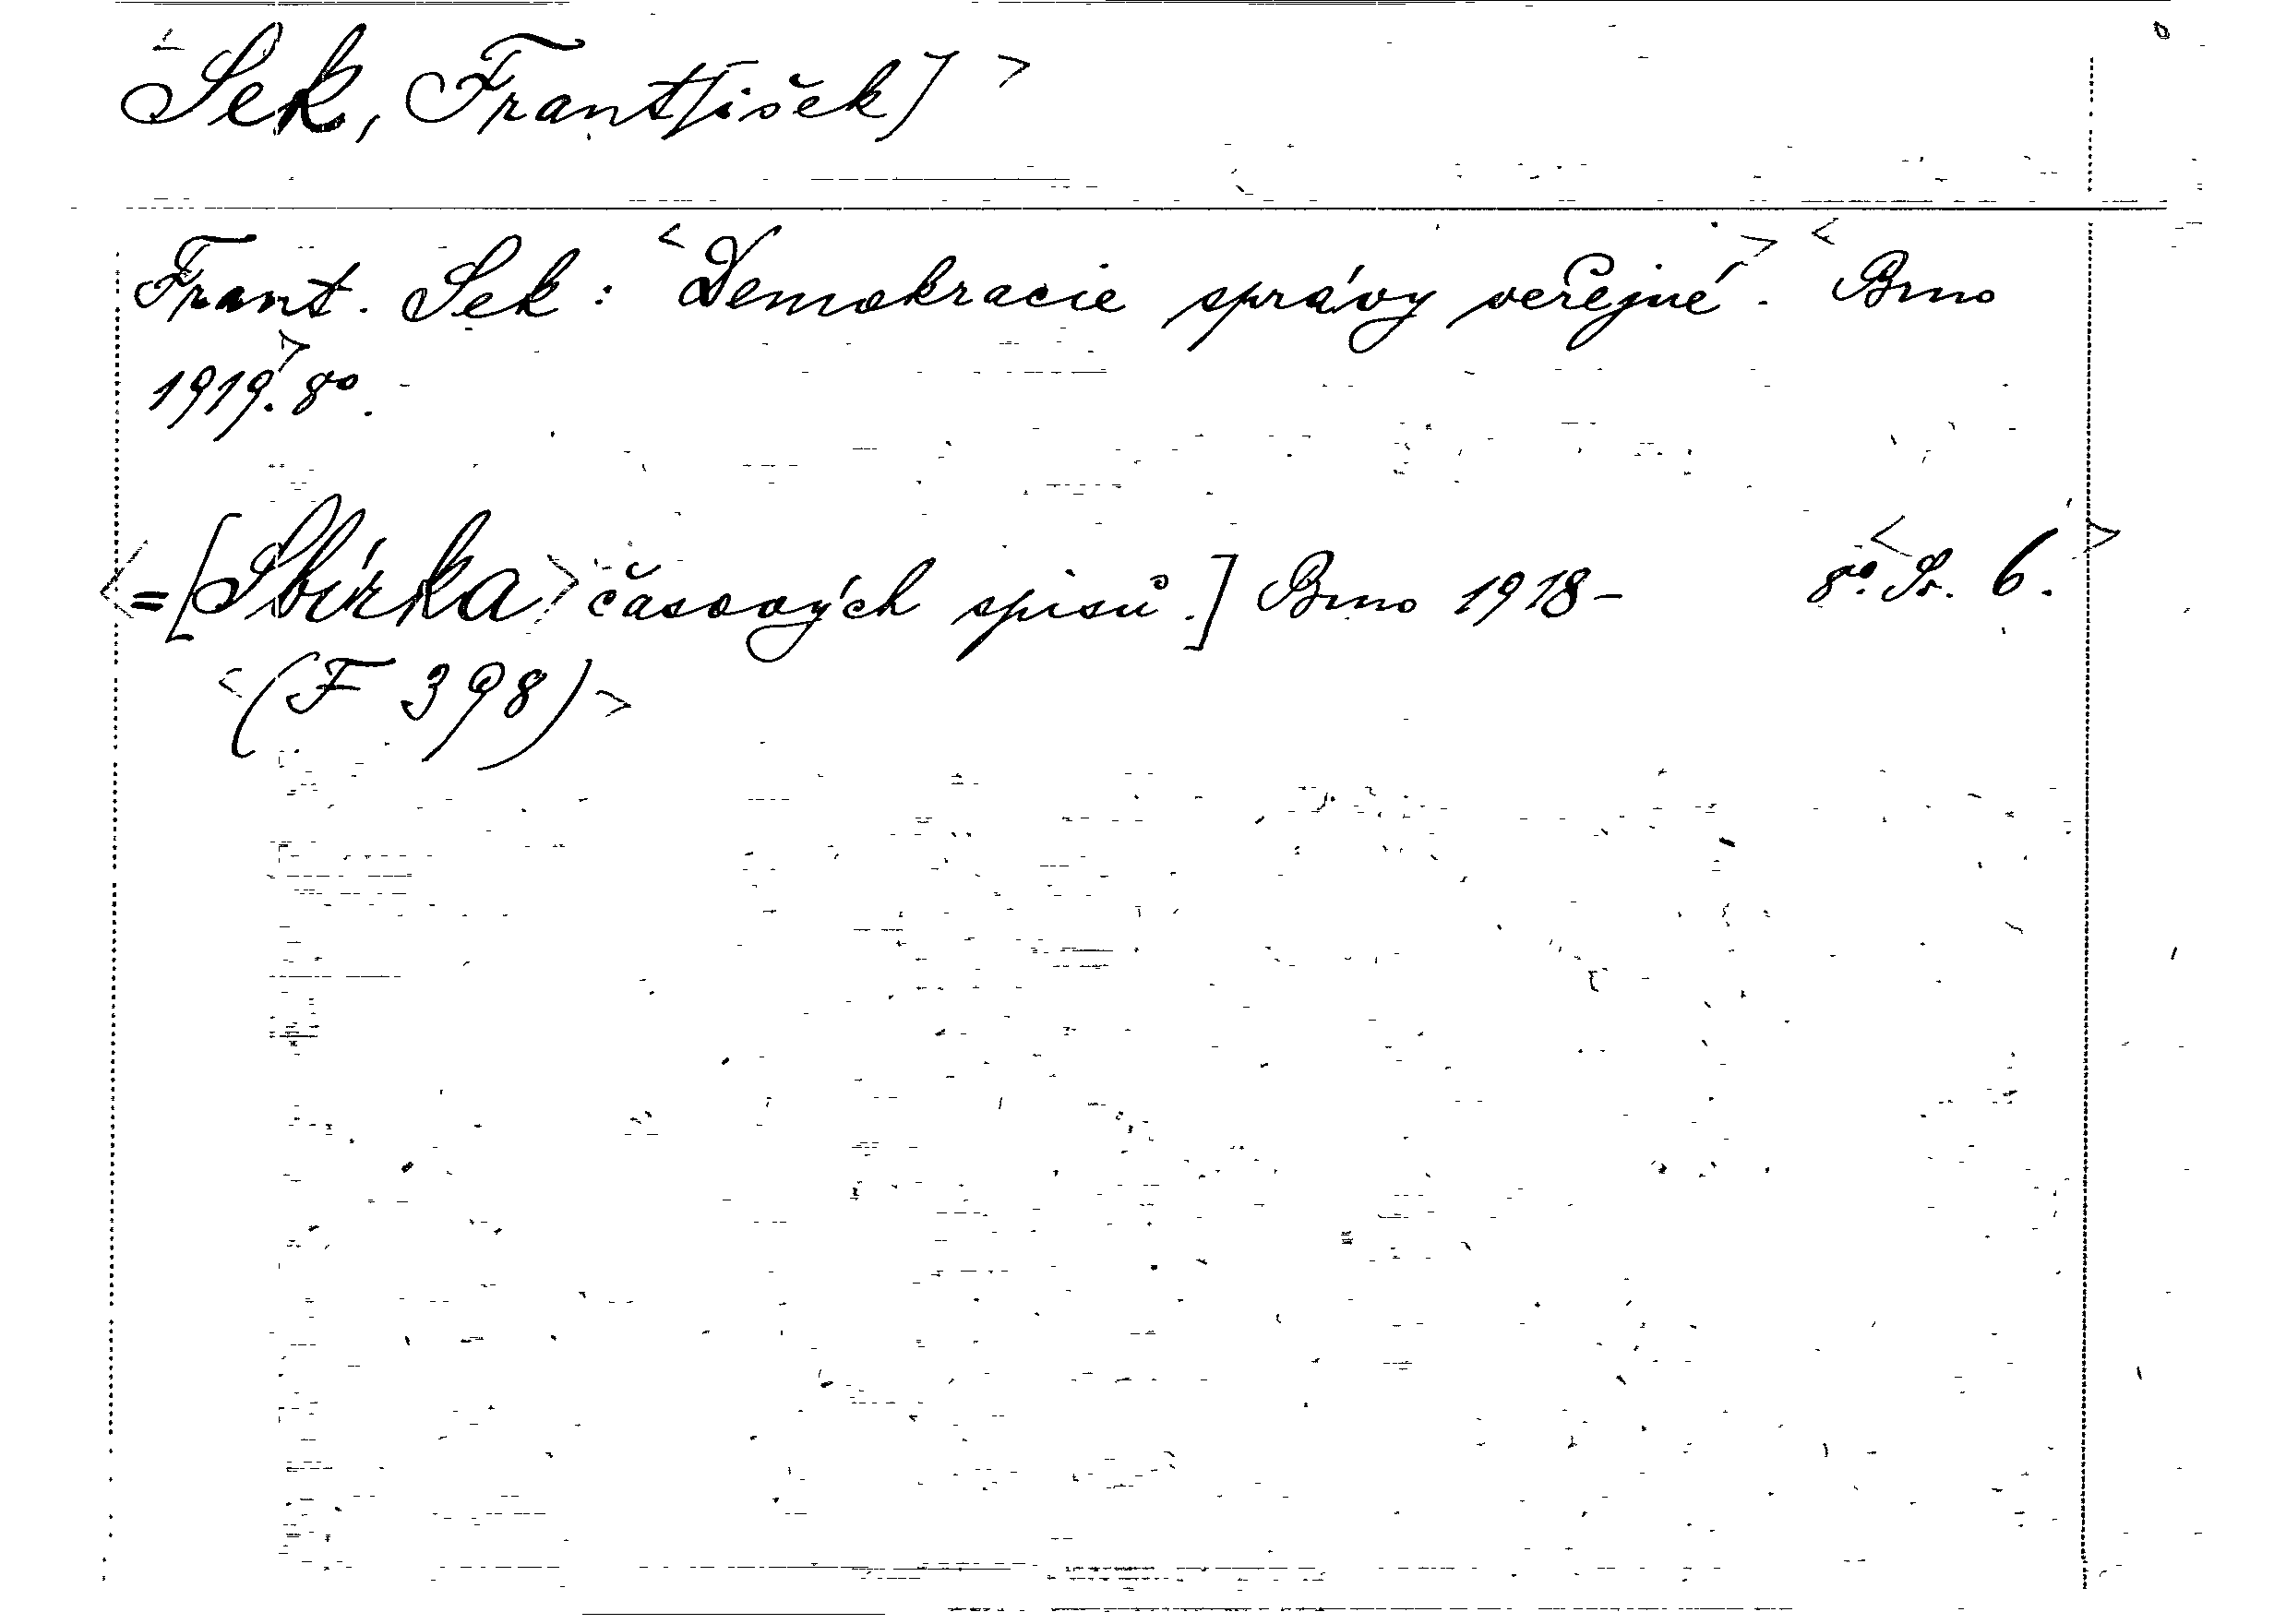 <Sek, Frant[išek]>
Frant. Sek: <Demokracie správy veřejné>. <Brno
1919>. 8o.
<=[Sbírka> časových spisů.] Brno 1918- 8o. <Sv. 6.>
<(F 398)>